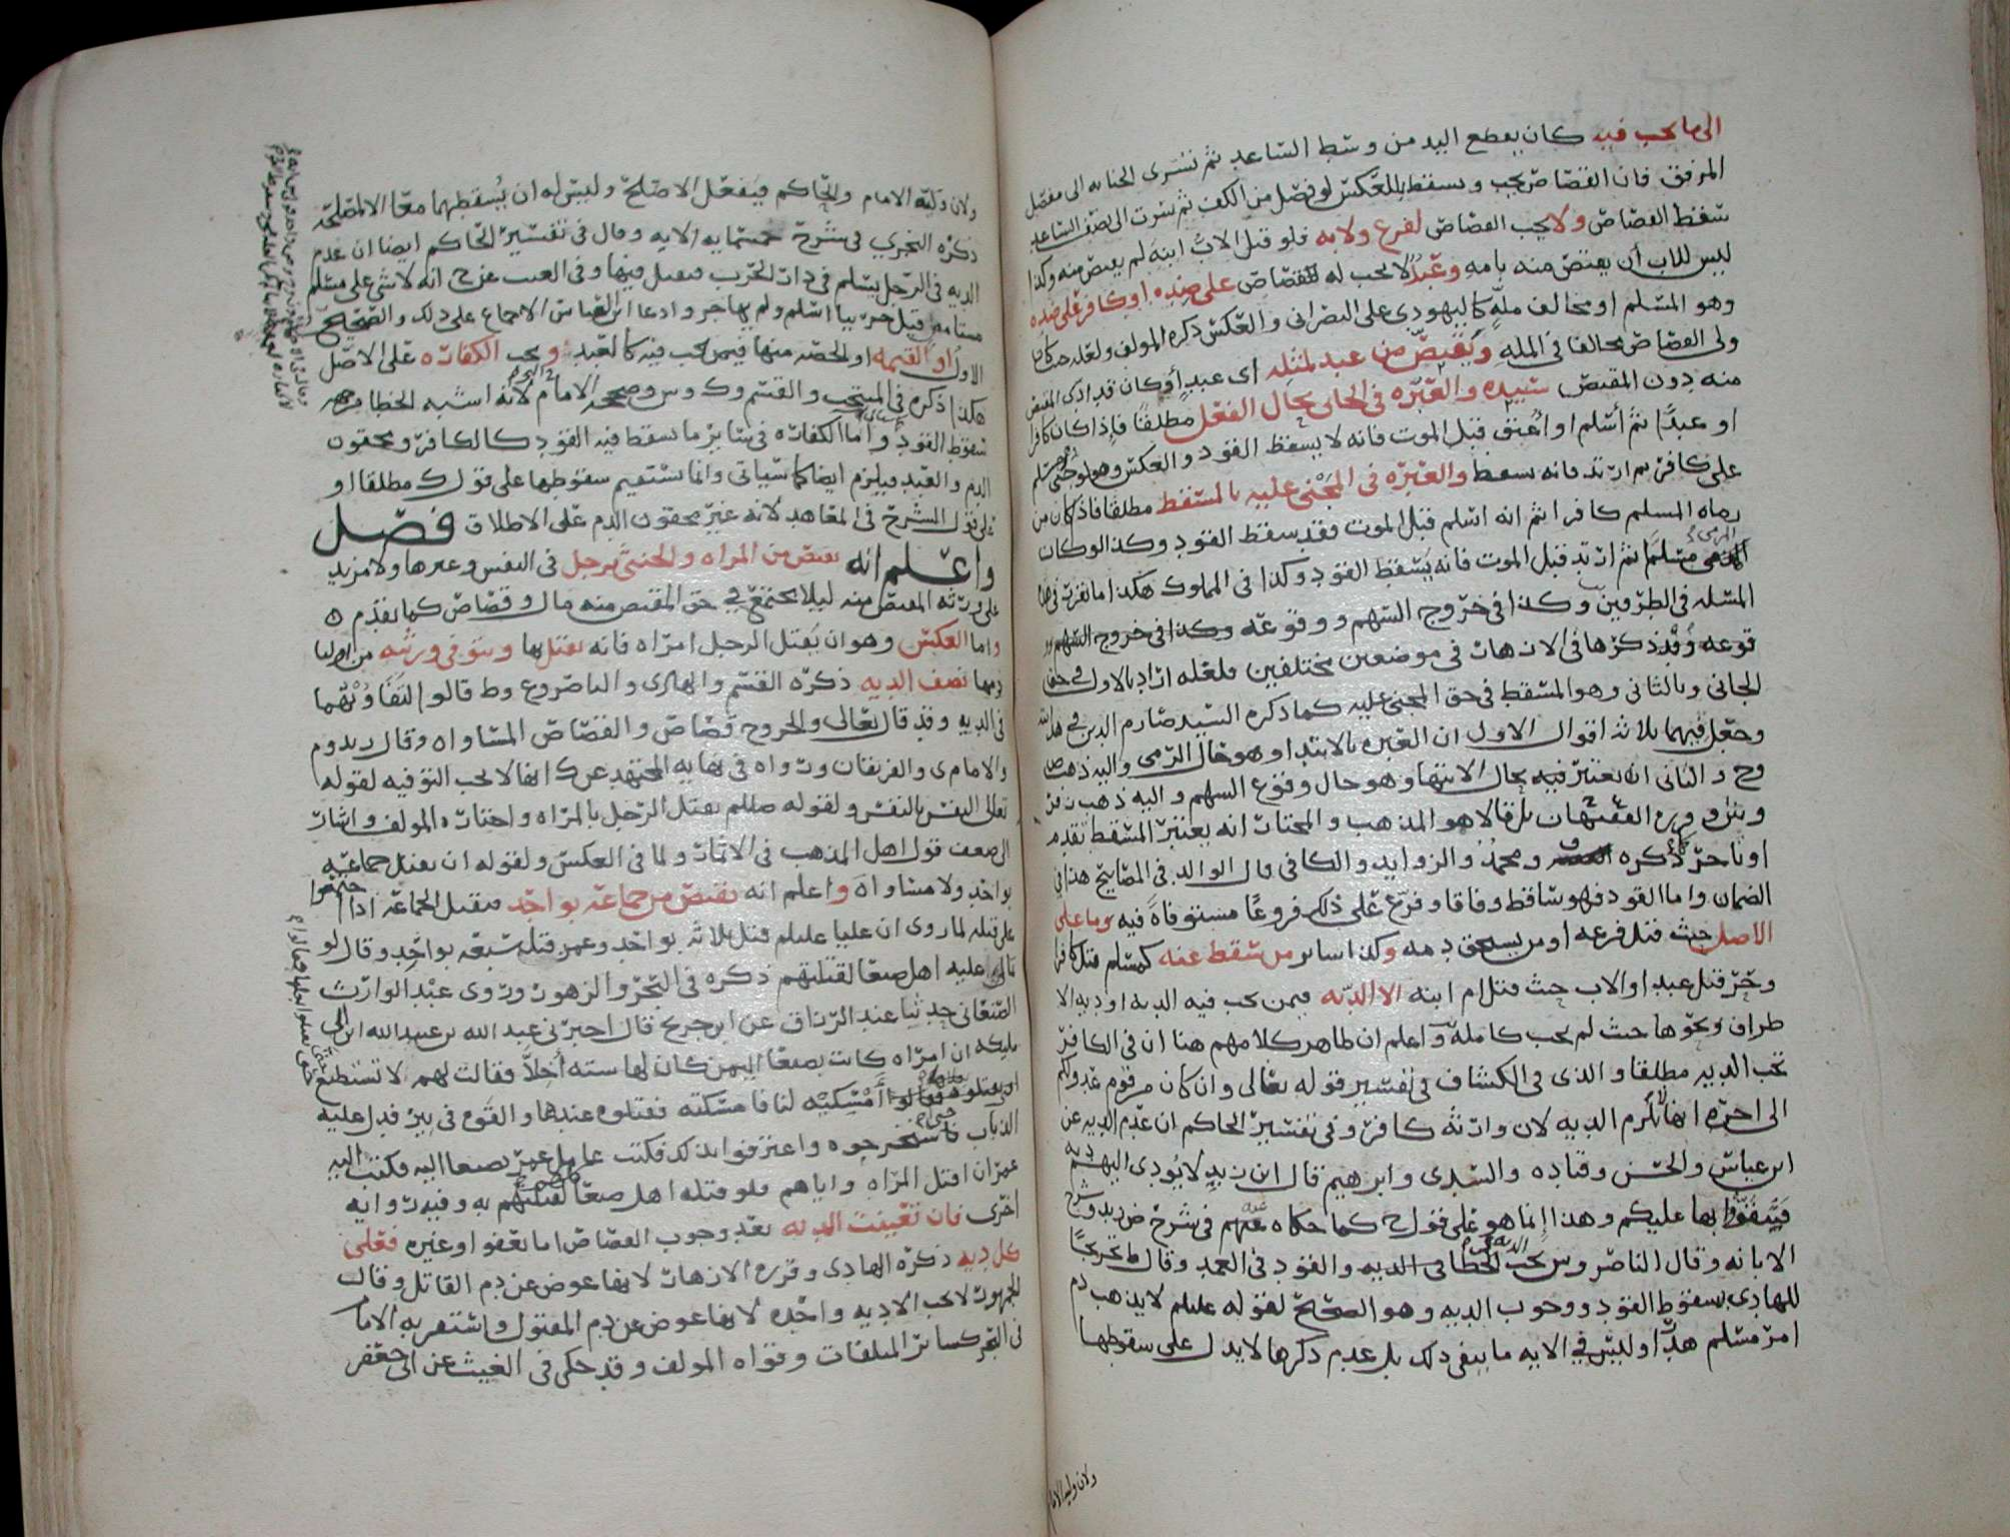 الى ما يجب فيه كان يقطع اليد من وسط الساعد ثم تسرى الجنايه الى مفصل
المرفق فان القصاص يجب ويسقط بالعكس لو فصل من الكف ثم سرت الى نصف الساعد
سقط القصاص ولا يجب القصاص لفرع ولا به فلو قتل الاب ابنه لم يقتص منه وكذا
ليس للابن أن يقتص منه بامه وعبد لا يجب له القصاص على ضده او كافر على ضده
وهو المسلم او مخالف مله كاليهودى على النصرانى والعكس ذكره المولف ولعله حيث كان
ولى القصاص مخالفا فى المله ويقتص من عبد لمثله أى عبد أو كان قد ادى المقتص
منه دون المقتص سيده والعبره فى الجانى بحال الفعل مطلقا فإذا كان كافرا
او عبدا ثم أسلم او أعتق قبل الموت فانه لا يسقط القود والعكس وهو لو جنى مسلم
على كافر ثم ارتد فانه يسقط والعبره فى المجنى عليه بالمسقط مطلقا فاذا كان من
رماه المسلم كافرا ثم انه اسلم قبل الموت فقد سقط القود وكذا لو كان
مسلما ثم ارتد قبل الموت فانه يسقط القود وكذا فى المملوك هكذا اما تقرر فى هذه
المسله فى الطرفين وكذا فى خروج السهم ووقوعه وكذا فى خروج السهم وو
قوعه وقد ذكرها فى الازهار فى موضعين مختلفين فلعله اراد بالاول فى حق
الجانى وبالثانى وهو المسقط فى حق المجنى عليه كما ذكره السيد صارم الدين فى هدايته
وجعل فيهما ثلاثة اقوال الاول ان العبره بالابتدا وهو حال الرمى واليه ذهب ص
وح والثانى ان يعتبر فيه بحال الانتها وهو حال وقوع السهم واليه ذهب زفر
الفقيهان بل قالا هو المذهب والمختار انه يعتبر المسقط تقدم
او تاخر ذكره ومحمد والزوايد والكافى قال الوالد فى المصابيح هذا فى
الضمان واما القود فهو ساقط وفاقا وفرع على ذلك فروعا مستوفاة فيه وما على
الاصل حيث قتل فرعه او من يستحق دمه وكذا ساير من سقط عنه كمسلم قتل كافرا
وحر قتل عبدا والاب حيث قتل ام ابنه الا الديه فيمن يجب فيه الديه او ديه الا
طراف ونحوها حيث لم يجب كامله واعلم ان ظاهر كلامهم هنا ان فى الكافر
تجب الديه مطلقا والذى فى الكشاف فى تفسير قوله تعالى وان كان من قوم عدو لكم
الى اخره انها لا تلزم الديه لان وارثه كافر وفى تفسير الحاكم ان عدم الديه عن
ابن عباس والحسن وقتاده والسدى وابرهيم قال ابن زيد لا يودى اليهم ديه
فيتقووا بها عليكم وهذا إنما هو على قول ح كما حكاه عنهم فى شرح ض زيد وشرح
الابانه وقال الناصر وس يجب الديه فى الخطا والقود فى العمد وقال ط تخريجا
للهادى بسقوط القود ووجوب الديه وهو الصحيح لقوله عليلم لا يذهب دم
امرء مسلم هدرا وليس فى الايه ما ينفى ذلك بل عدم ذكرها لا يدل على سقوطها
ولان وليه الامام
ولان وليه الامام والحاكم فيفعل الاصلح وليس له ان يسقطهما معا الا لمصلحه
ذكره النجرى فى شرح خمسمايه الايه وقال فى تفسير الحاكم ايضا ان عدم
الديه فى الرجل يسلم فى دار الحرب فيقتل فيها وفى الغيث عن ح انه لا شى على مسلم
مستامن قتل حربيا اسلم ولم يهاجر وادعا ابو العباس الاجماع على ذلك والصحيح
الاول او القيمه او الحصه منها فيمن يجب فيه كالعبد ويجب الكفاره على الاصل
هكذا ذكره فى المنتخب والقسم وك وس وصححه الامام لانه اشبه الخطا من جهه
سقوط القود واما الكفاره فى ساير ما يسقط فيه القود كالكافر ومحقون
الدم والعبد فيلزم ايضا كما سياتى وانما يستقيم سقوطها على قول ك مطلقا او
على قول الشرح فى المعاهد لانه غير محقون الدم على الاطلاق فصل
واعلم انه يقتص من المراه والخنثى برجل فى النفس وغيرها ولا مزيد
على ورثه المقتص منه ليلا يجتمع فى حق المقتص منه مال وقصاص كما تقدم ه
واما العكس وهو ان يقتل الرجل امراه فانه يقتل بها ويتوفى ورثته من اوليا
دمها نصف الديه ذكره القسم والهادى والناصر وع وط قالوا لتفاوتهما
فى الديه وقد قال تعالى والجروح قصاص والقصاص المساواه وقال زيد وم
والامام ى والفريقان ورواه فى نهايه المجتهد عن ك انها لا يجب التوفيه لقوله
تعالى النفس بالنفس ولقوله صللم يقتل الرجل بالمراه واختاره المولف واشار
الى ضعف قول اهل المذهب فى الاثمار ولما فى العكس ولقوله ان يقتل جماعه
بواحد ولا مساواه واعلم انه يقتص من جماعه بواحد فيقتل الجماعه اذا اجتمعوا
على قتله لما روى ان عليا عليلم قتل ثلاثه بواحد وعمر قتل سبعه بواحد وقال لو
تمالى عليه اهل صنعا لقتلتهم ذكره فى البحر والزهور وروى عبد الوارث
الصنعانى حدثنا عبد الرزاق عن ابن جريج قال اخبرنى عبد الله بن عبيد الله ابن ابى
مليكه ان امراه كانت بصنعا اليمن كان لها سته أخلا فقالت لهم لا تستطيع
ان تقتلوه فقالوا أمسكيه لنا فامسكته فقتلوه عندها والقوه فى بير فدل عليه
الذباب فاستخرجوه واعترفوا بذلك فكتب عامل عمر بصنعا اليه فكتب اليه
عمر ان اقتل المراه واياهم فلو قتله اهل صنعا لقتلتهم به وفيه روايه
اخرى فان تعينت الديه بعد وجوب القصاص اما بعفو او غيره فعلى
كل ديه ذكره الهادى وقرره الازهار لانها عوض عن دم القاتل وقال
الجمهور لا يجب الا ديه واحده لانها عوض عن دم المقتول واستقر به الامام
فى البحر كساير المتلفات وقواه المولف وقد حكى فى الغيث عن ابى جعفر